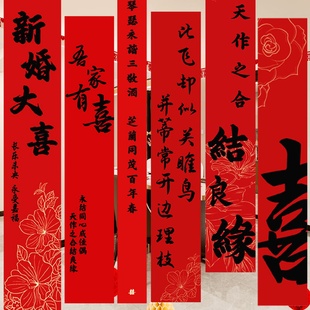 新婚大喜
长乐未央 永受嘉福
吾家有喜
永谐同心成佳偶
天作之合结良缘
琴瑟永諧三敬酒 芝蘭同茂百年春
比飞却似关雎鸟
并蒂常开连理枝
天作之合
結良緣
囍